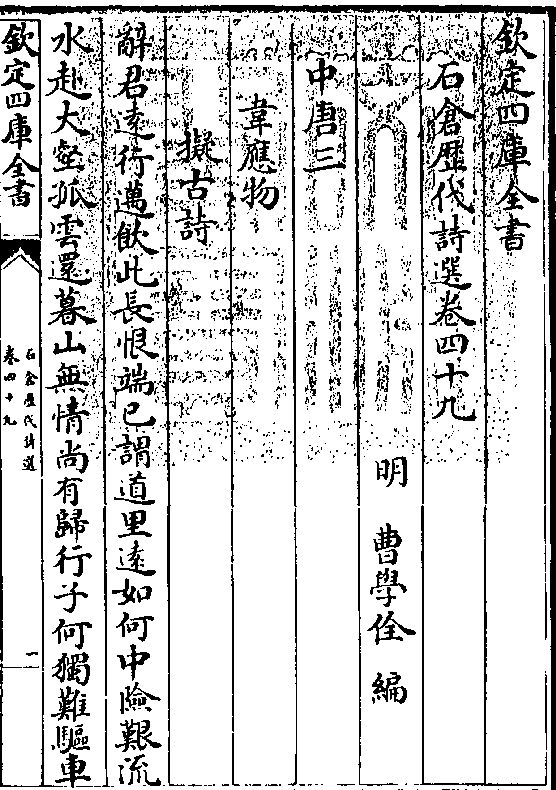 欽定四庫全書
石倉歴代詩選卷四十九
明 曹學佺 編
中唐三
韋應物
擬古詩
辭君逺行邁飲此長恨端已謂道里逺如何中險艱流
水赴大壑孤雲還暮山無情尚有歸行子何獨難驅車
欽定四庫全書
石倉歴代詩選
卷四十九
一